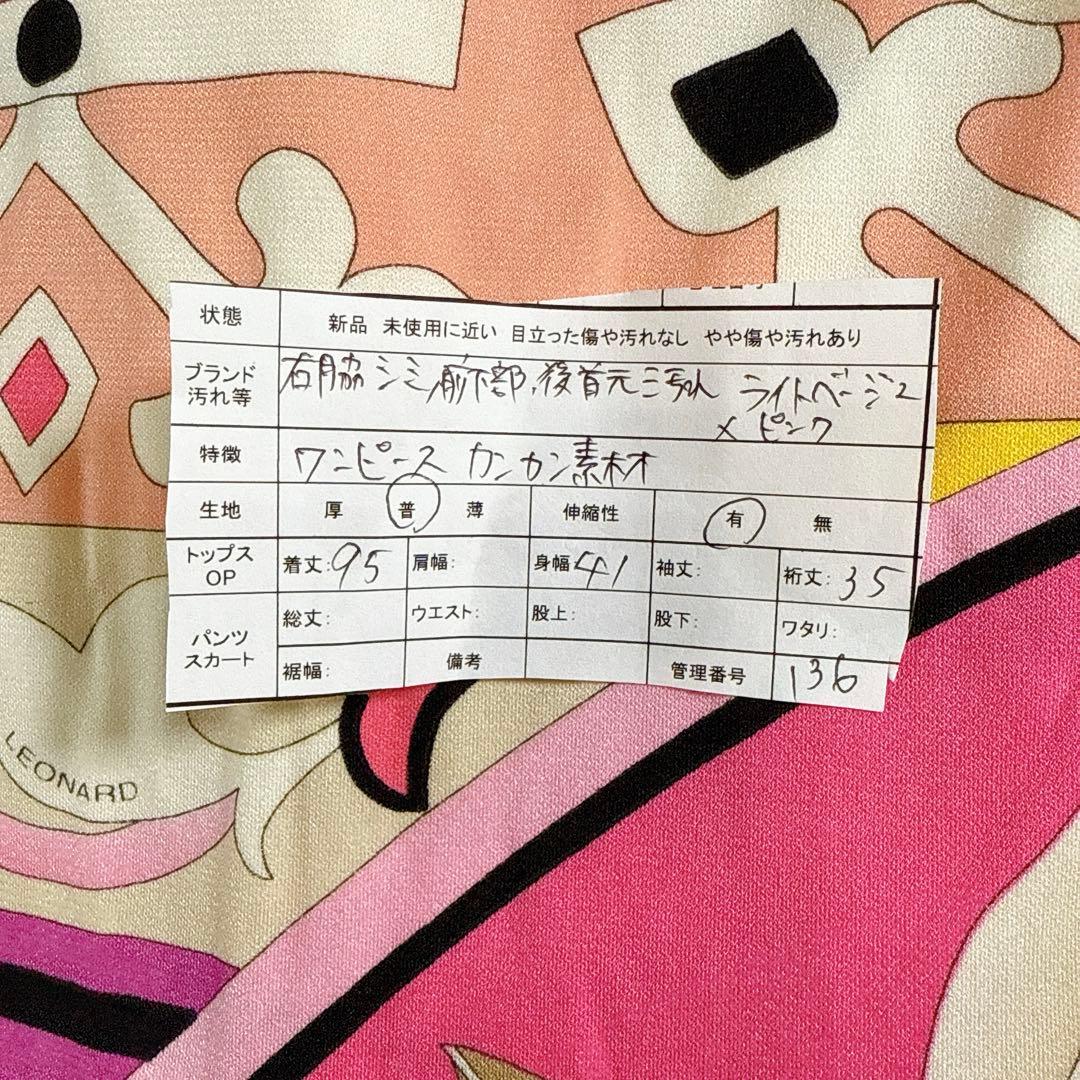 状態 新品 未使用に近い 目立った傷や汚れなし やや傷や汚れあり
ブランド 汚れ等 右脇シミ 前下部、後首元ミ汚れ ライトベージュ
× ピンク
特徴 ワンピース カンカン素材
生地 厚 普 薄 伸縮性 有 無
トップス OP 着丈:95 肩幅: 身幅41 袖丈: 裄丈:35
パンツ スカート 総丈: ウエスト: 股上: 股下: ワタリ:
裾幅: 備考 管理番号 136
LEONARD